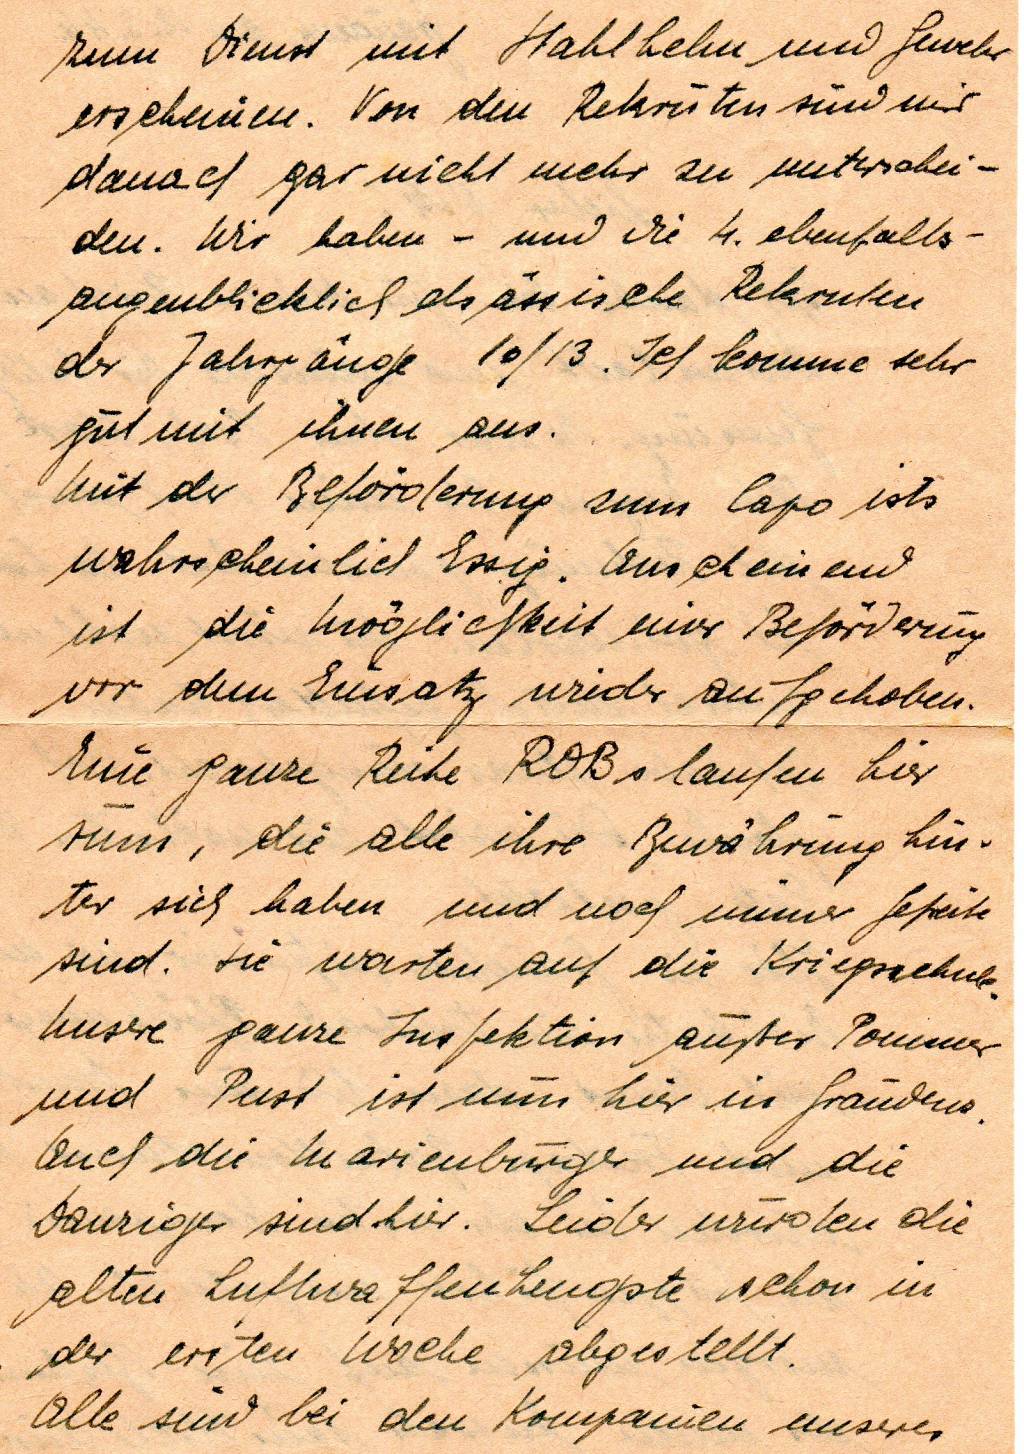 zum Dienst mit Stahlhelm und Gewehr
erscheinen. Von den Rekruten sind wir
danach gar nicht mehr zu unterschei-
den. Wir haben - und die 4. ebenfalls -
augenblicklich elsässische Rekruten
der Jahrgänge 10/13. Ich komme sehr
gut mit ihnen aus.
Mit der Beförderung zum Capo ists
wahrscheinlich Essig. Anscheinend
ist die Möglichkeit einer Beförderung
vor dem Einsatz wieder aufgehoben.
Eine ganze Reihe ROBs laufen hier
rum, die alle ihre Bewährung hin-
ter sich haben und noch immer Gefreite
sind. Sie warten auf die Kriegsschule.
Unsere ganze Inspektion außer Pommer
und Pust ist nun hier in Graudenz.
Auch die Marienburger und die
Danziger sind hier. Leider wurden die
alten Luftwaffenhengste schon in
der ersten Woche abgestellt.
Alle sind bei den Kompanien unseres